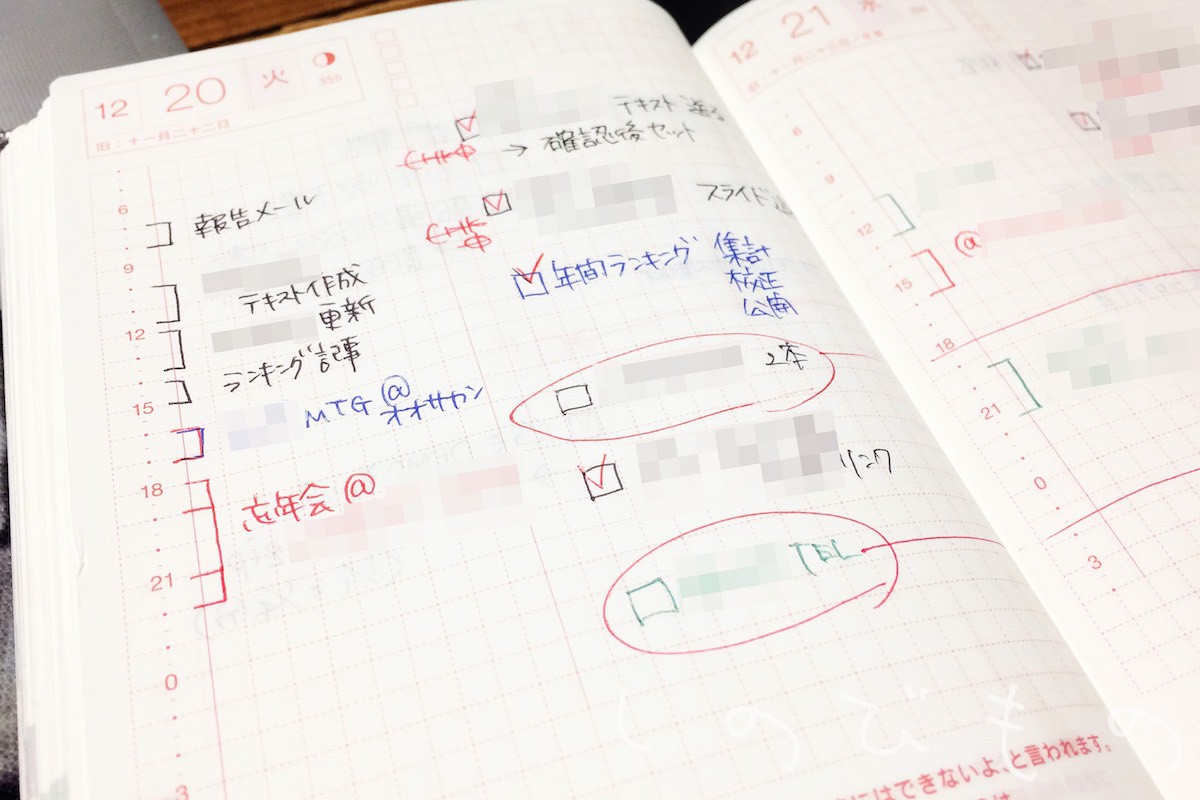 12 20 火
355
旧：十一月二十二日
6
9
12
15
18
21
0
3
報告メール
テキスト作成
更新
ランキング記事
MTG @
オオサカン
忘年会 @
テキスト送る
→ 確認後セット
スライド
年間ランキング 集計
校正
公開
2本
リンク
TEL
12 21 水
6
9
12
15
18
21
0
3
@
にはできないよ、と言われます。
しのびもの